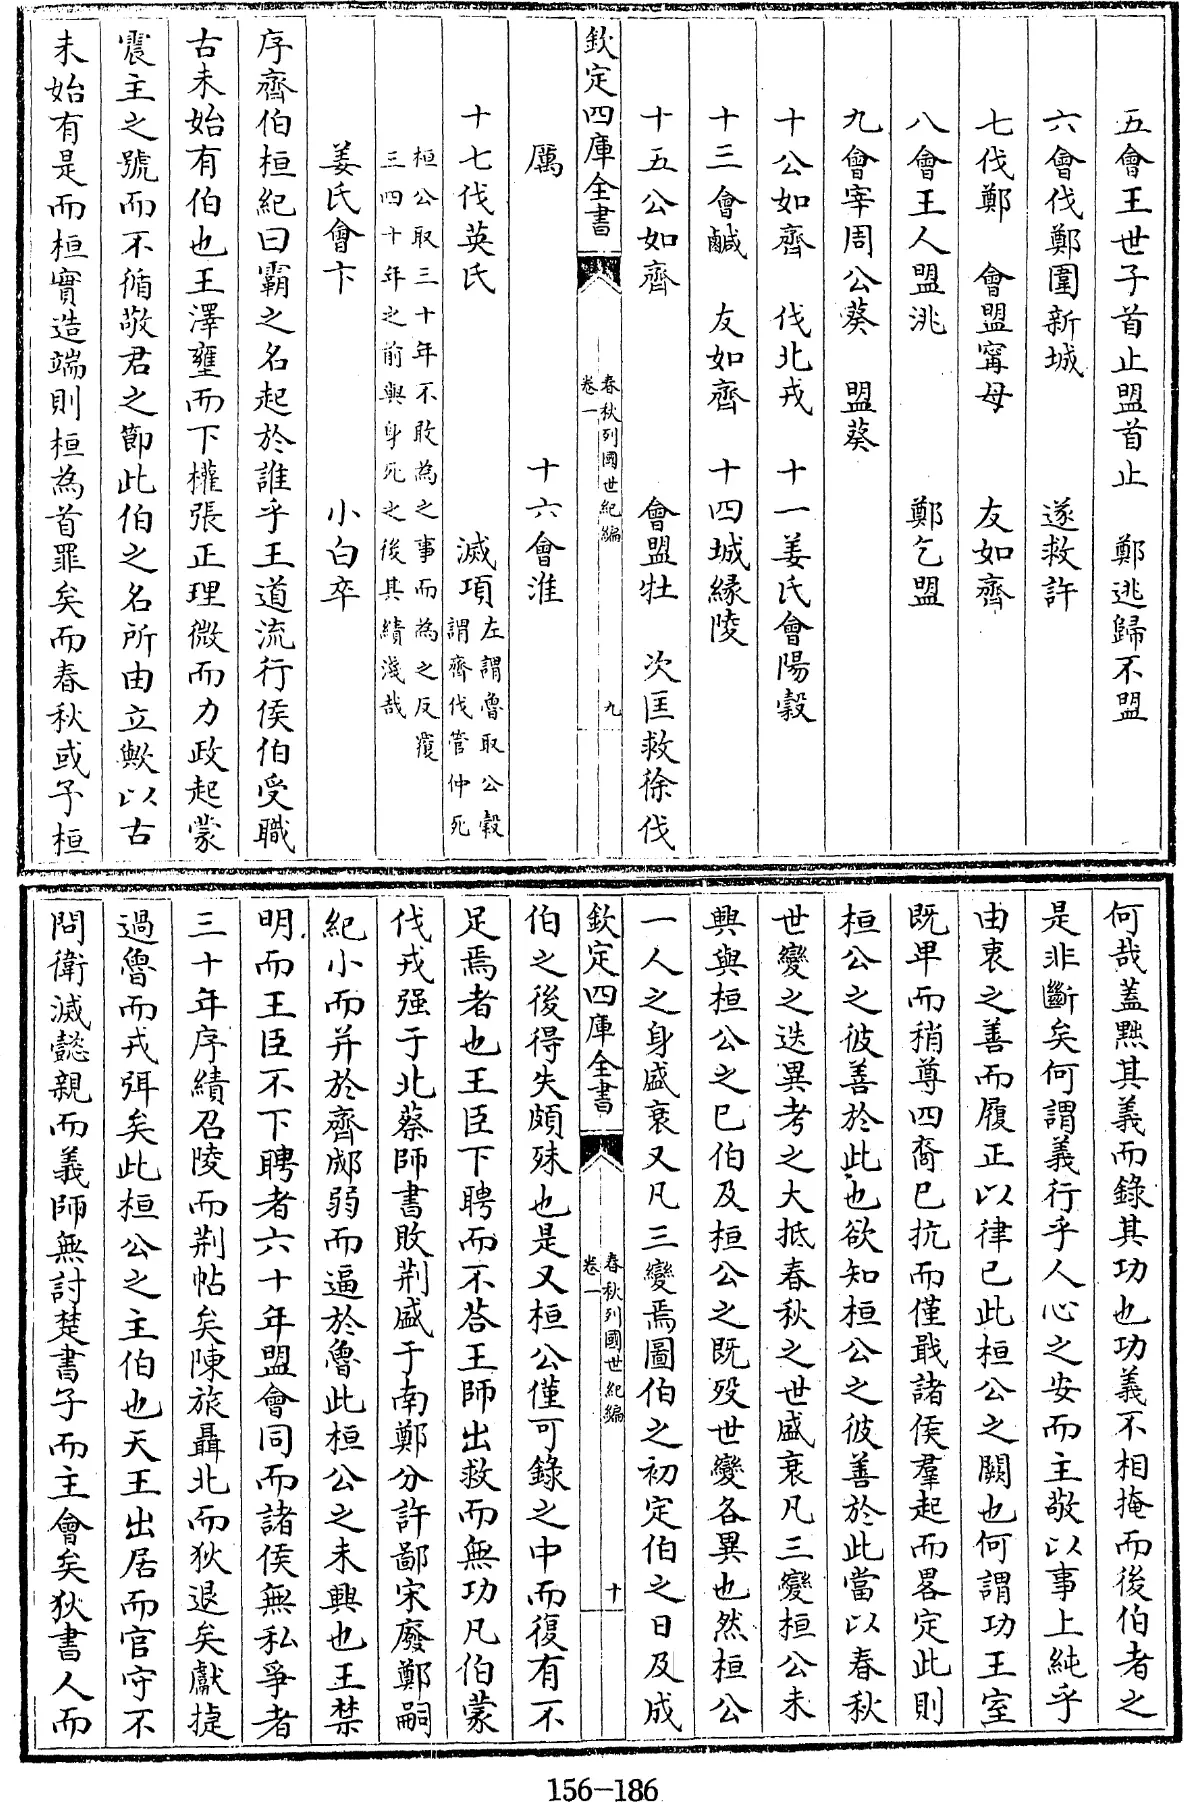 五會王世子首止盟首止　鄭逃歸不盟
六會伐鄭圍新城　遂救許
七伐鄭　會盟甯母　友如齊
八會王人盟洮　鄭乞盟
九會宰周公葵　盟葵
十公如齊　伐北戎　十一姜氏會陽穀
十三會鹹　友如齊　十四城緣陵
十五公如齊　會盟牡　次匡救徐伐
欽定四庫全書
春秋列國世紀編
卷一
九
厲　十六會淮
十七伐英氏　滅項左謂魯取公穀
謂齊伐管仲死
桓公取三十年不敢為之事而為之反覆
三四十年之前與身死之後其績淺哉
姜氏會卞　小白卒
序齊伯桓紀曰霸之名起於誰乎王道流行侯伯受職
古未始有伯也王澤壅而下權張正理微而力政起蒙
震主之號而不循敬君之節此伯之名所由立歟以古
未始有是而桓實造端則桓為首罪矣而春秋或予桓
何哉蓋黜其義而錄其功也功義不相掩而後伯者之
是非斷矣何謂義行乎人心之安而主敬以事上純乎
由衷之善而履正以律己此桓公之闕也何謂功王室
既卑而稍尊四裔已抗而僅戢諸侯羣起而畧定此則
桓公之彼善於此也欲知桓公之彼善於此當以春秋
世變之迭異考之大抵春秋之世盛衰凡三變桓公未
興與桓公之已伯及桓公之既歿世變各異也然桓公
一人之身盛衰又凡三變焉圖伯之初定伯之日及成
欽定四庫全書
春秋列國世紀編
卷一
十
伯之後得失頗殊也是又桓公僅可錄之中而復有不
足焉者也王臣下聘而不荅王師出救而無功凡伯蒙
伐戎强于北蔡師書敗荆盛于南鄭分許鄙宋廢鄭嗣
紀小而并於齊郕弱而逼於魯此桓公之未興也王禁
明而王臣不下聘者六十年盟會同而諸侯無私爭者
三十年序績召陵而荆帖矣陳旅聶北而狄退矣獻捷
過魯而戎弭矣此桓公之主伯也天王出居而官守不
問衛滅懿親而義師無討楚書子而主會矣狄書人而
156-186